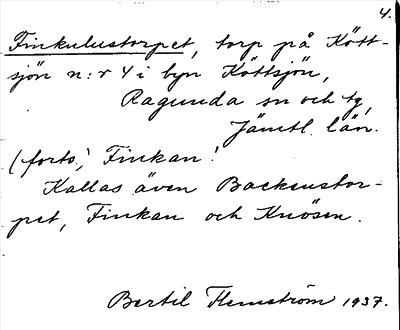 4.
Finkulustorpet, torp på Kött-
sjön n:r 4 i byn Köttsjön,
Ragunda sn och tg,
Jämtl. län.
(forts.) Finkan!
Kallas även Backenstor-
pet, Finkan och Knösen.
Bertil Flemström 1937.